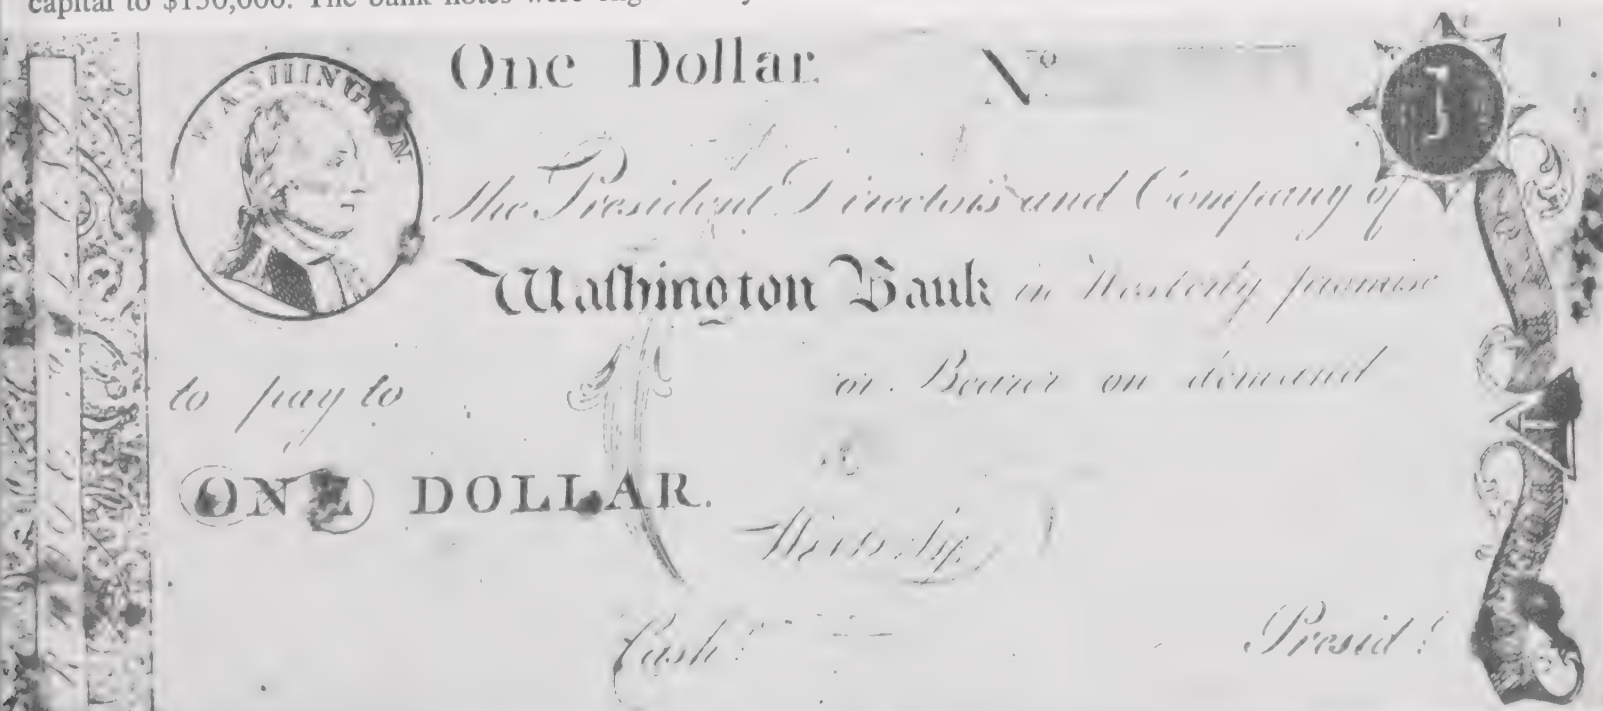 capital to $150,000. The bank notes were
One Dollar. No
WASHINGTON
1
The President Directors and Company of
Waſhington Bank in Westerly promise
to pay to or Bearer on demand
ONE DOLLAR.
Westerly
Cash.r Presid.t